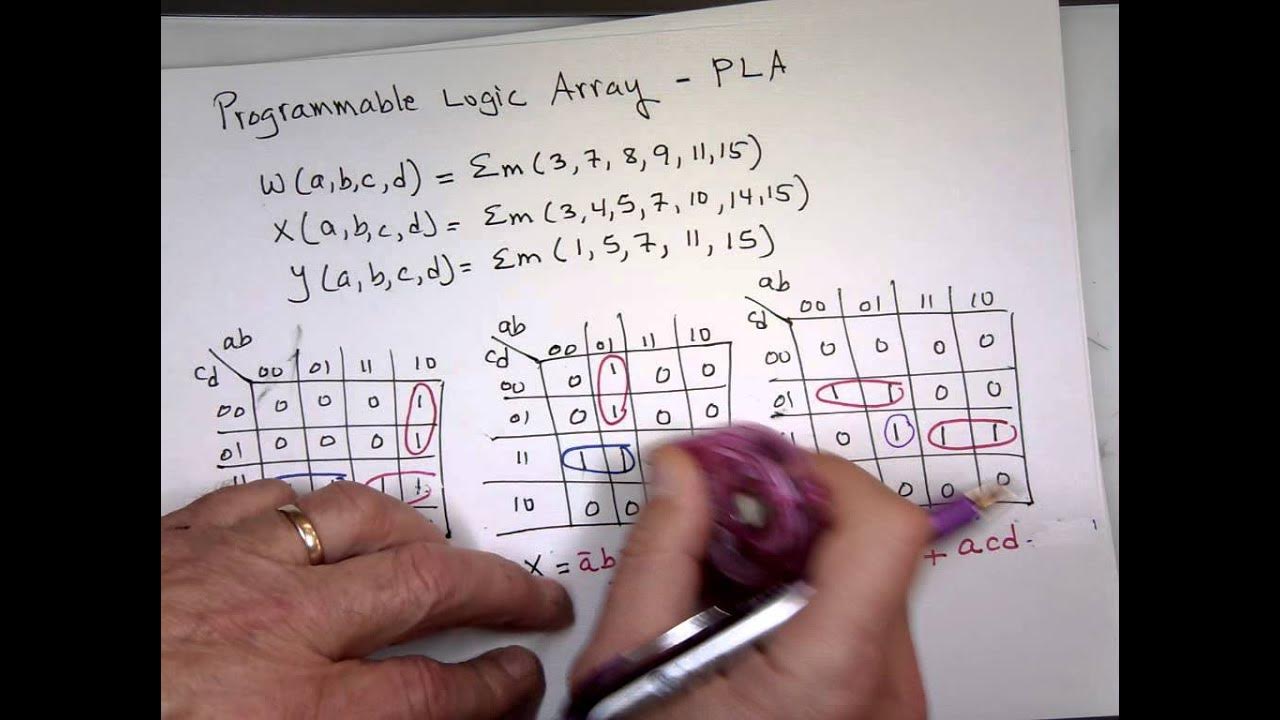 Programmable Logic Array - PLA
W(a,b,c,d) = Σm(3,7,8,9,11,15)
X(a,b,c,d) = Σm(3,4,5,7,10,14,15)
y(a,b,c,d) = Σm(1,5,7,11,15)
ab
cd 00 01 11 10
00 0 0 0 1
01 0 0 0 1
ab
cd 00 01 11 10
00 0 1 0 0
01 0 1 0 0
11 1 1
10 0 0
X = a̅b
ab
cd 00 01 11 10
00 0 0 0 0
01 1 1 0 0
0 1 1 1
0 0 0
+ acd